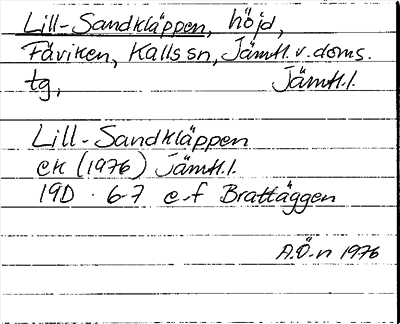 Lill-Sandkläppen, höjd,
Fäviken, Kalls sn, Jämtl. v. doms.
tg, Jämtl.l.
Lill-Sandkläppen
ek (1976) Jämtl.l.
19D · 6-7 e-f Brattäggen
A.Ö-n 1976